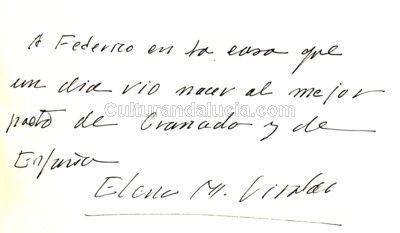 A Federico en la casa que
un dia vio nacer al mejor
Culturandalucia.com
poeta de Granada y de
España
Elena M.